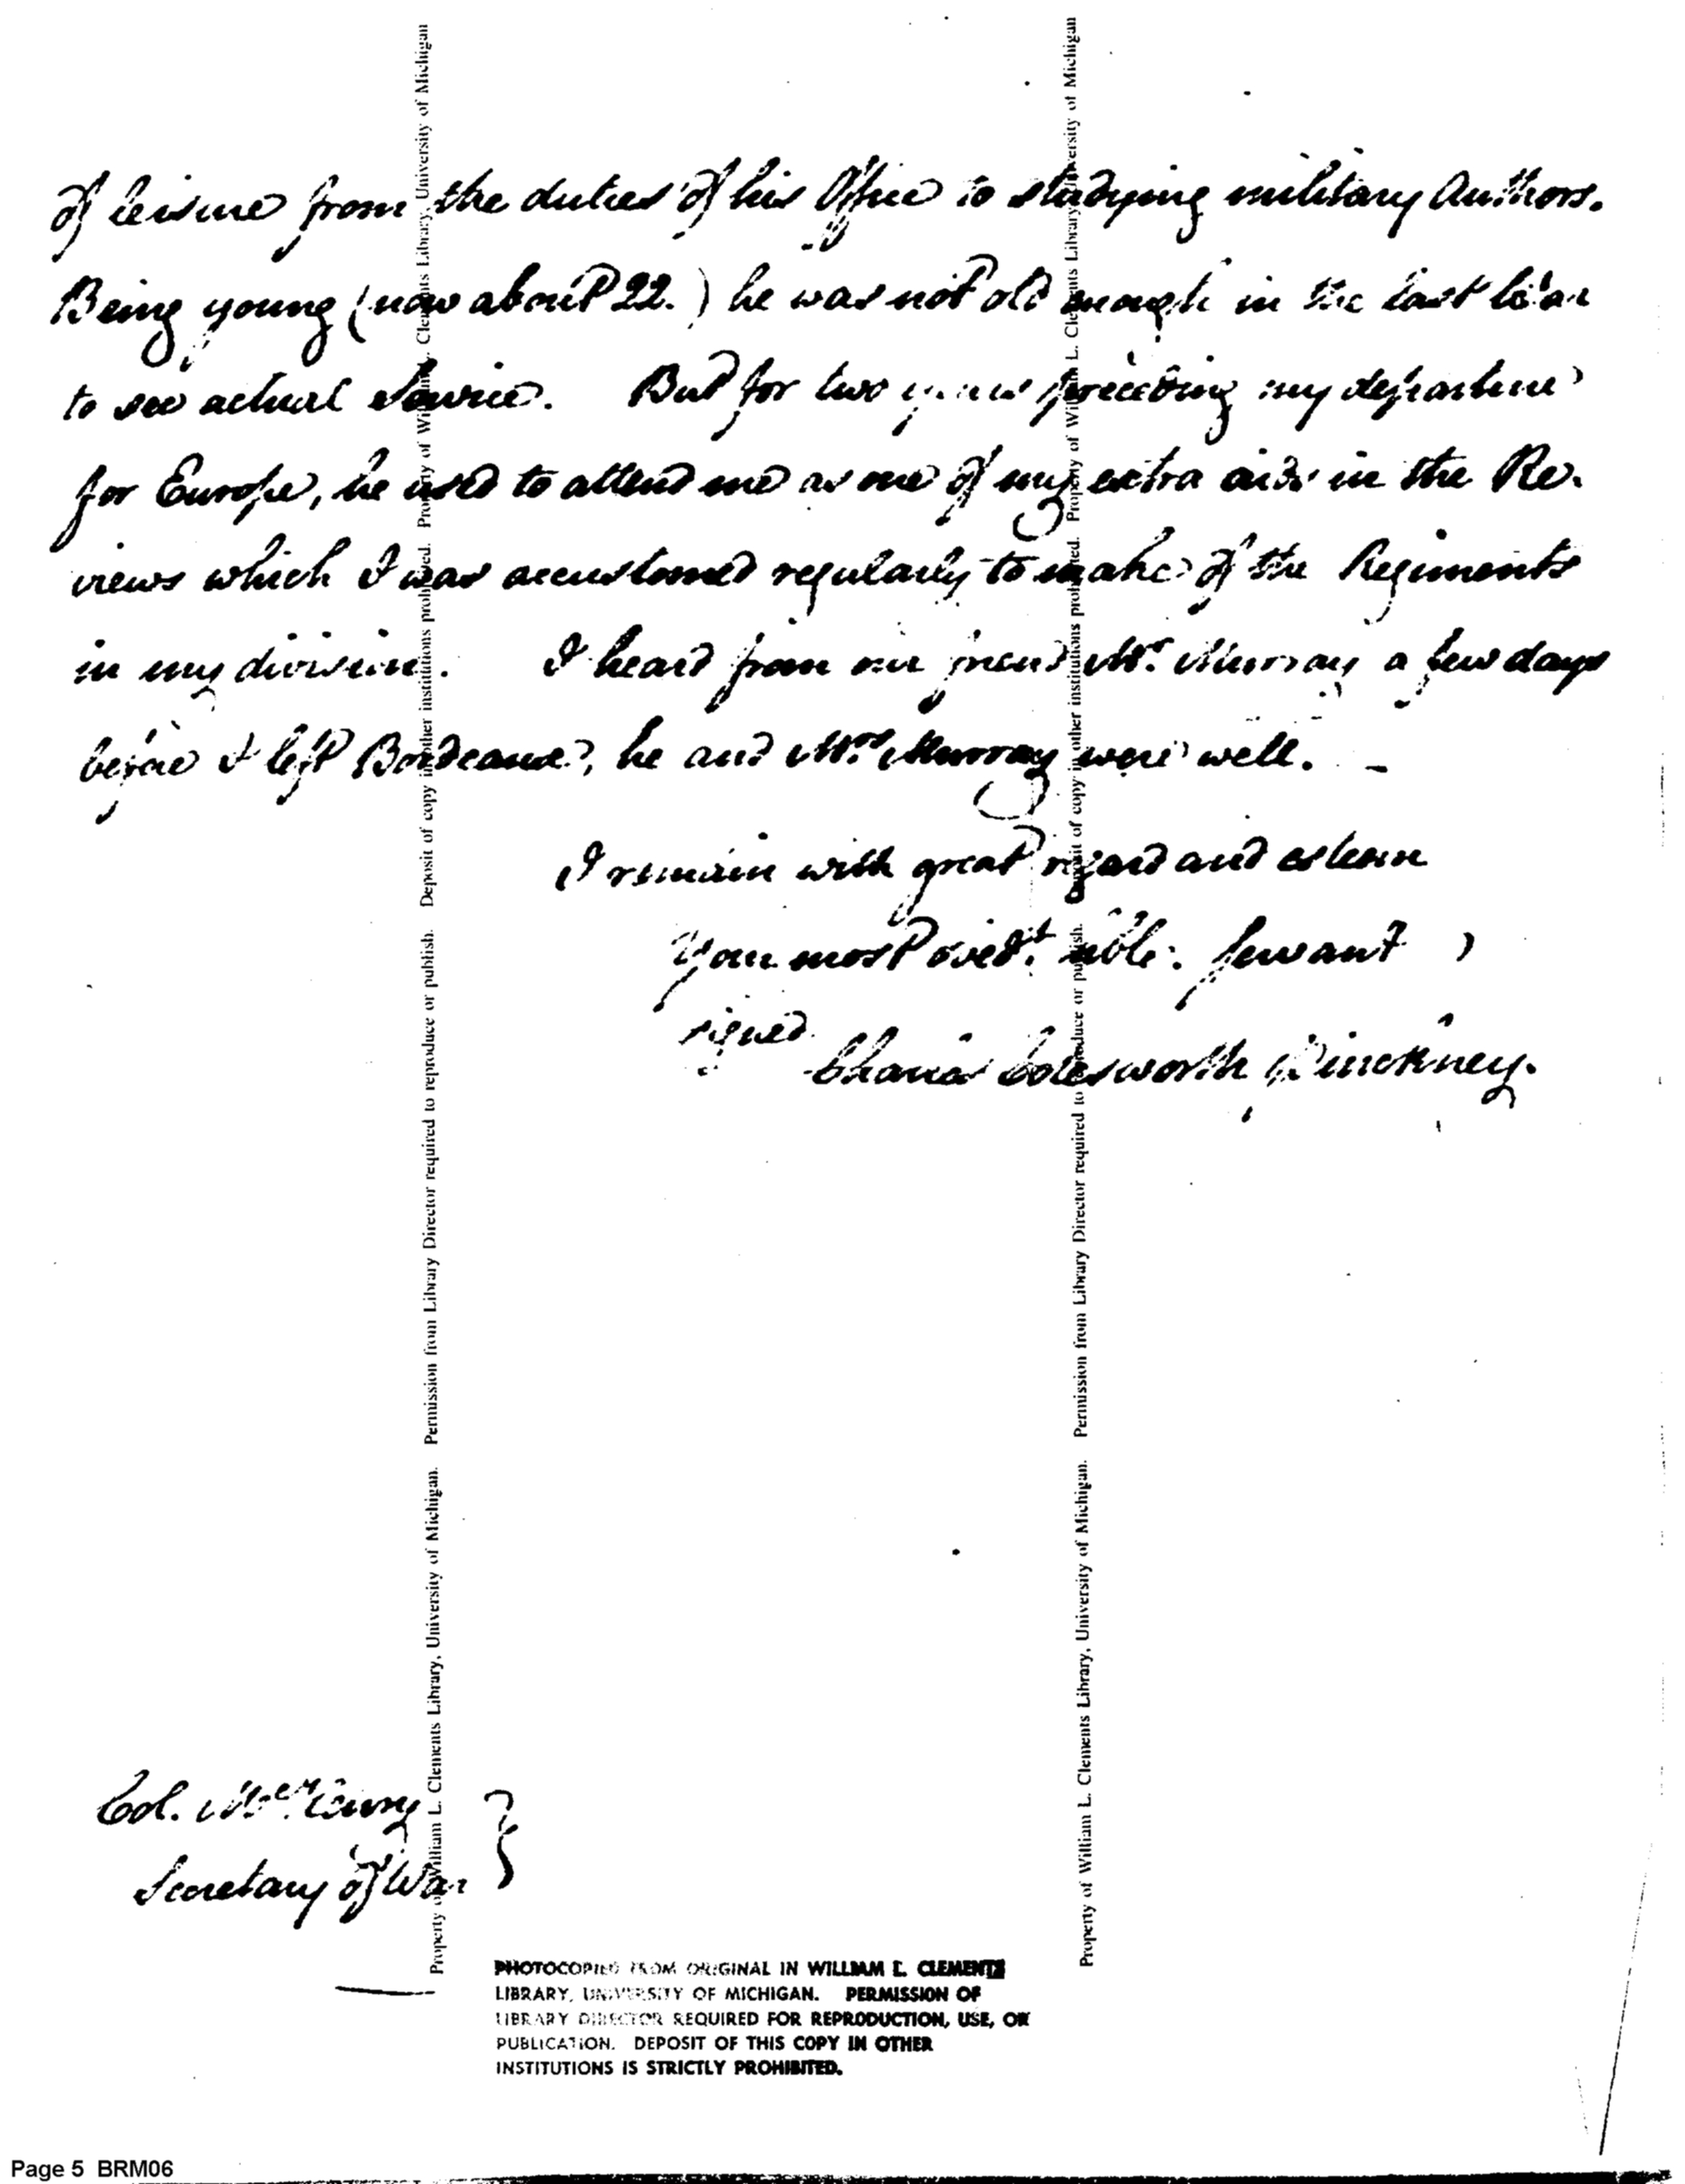 of leisure from the duties of his Office to studying military Authors.
Being young (now about 22.) he was not old enough in the last War
to see actual Service. But for two years preceeding my departure
for Europe, he used to attend me as one of my extra aids in the Re-
views which I was accustomed regularly to make of the Regiments
in my division. I heard from our friend Mr. Murray a few days
before I left Bordeaux, he and Mrs. Murray were well. –
I remain with great regard and esteem
Your most obedt. hble. Servant
signed
Charles Cotesworth Pinckney.
Col. McHenry
Secretary of War
Property of William L. Clements Library, University of Michigan. Permission from Library Director required to reproduce or publish. Deposit of copy in other institutions prohibited. Property of William L. Clements Library, University of Michigan
Property of William L. Clements Library, University of Michigan. Permission from Library Director required to reproduce or publish. Deposit of copy in other institutions prohibited. Property of William L. Clements Library, University of Michigan
PHOTOCOPIED FROM ORIGINAL IN WILLIAM L. CLEMENTS
LIBRARY, UNIVERSITY OF MICHIGAN. PERMISSION OF
LIBRARY DIRECTOR REQUIRED FOR REPRODUCTION, USE, OR
PUBLICATION. DEPOSIT OF THIS COPY IN OTHER
INSTITUTIONS IS STRICTLY PROHIBITED.
Page 5 BRM06